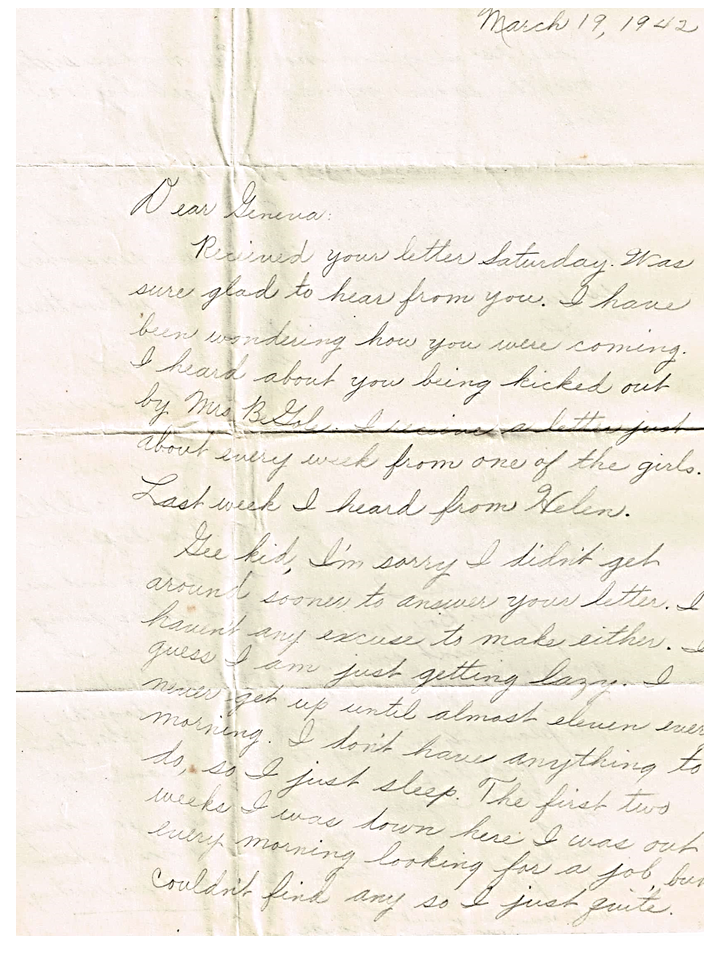 March 19, 1942
Dear Geneva:
Recieved your letter Saturday. Was
sure glad to hear from you. I have
been wondering how you were coming.
I heard about you being kicked out
by Mrs. I recieve a letter just
about every week from one of the girls.
Last week I heard from Helen.
Gee kid, I'm sorry I didn't get
around sooner to answer your letter. I
haven't any excuse to make either. I
guess I am just getting lazy. I
never get up until almost eleven ever
morning. I don't have anything to
do, so I just sleep. The first two
weeks I was down here I was out
every morning looking for a job, but
couldn't find any so I just quite.